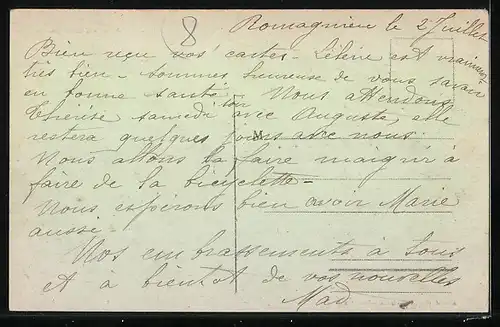 8
Romagnieu le 2 Juillet
Bien reçu vos cartes - L'était est vraiment
très bien - sommes heureuse de vous savoir
en bonne santé - Nous attendons
Thérèse samedi avec Auguste, elle
restera quelques jours avec nous.
M
Nous allons la faire maigrir à
faire de la bicyclette -
Nous espérons bien avoir Marie
aussi
Nos embrassements à tous
et à bientôt de vos nouvelles
Mad